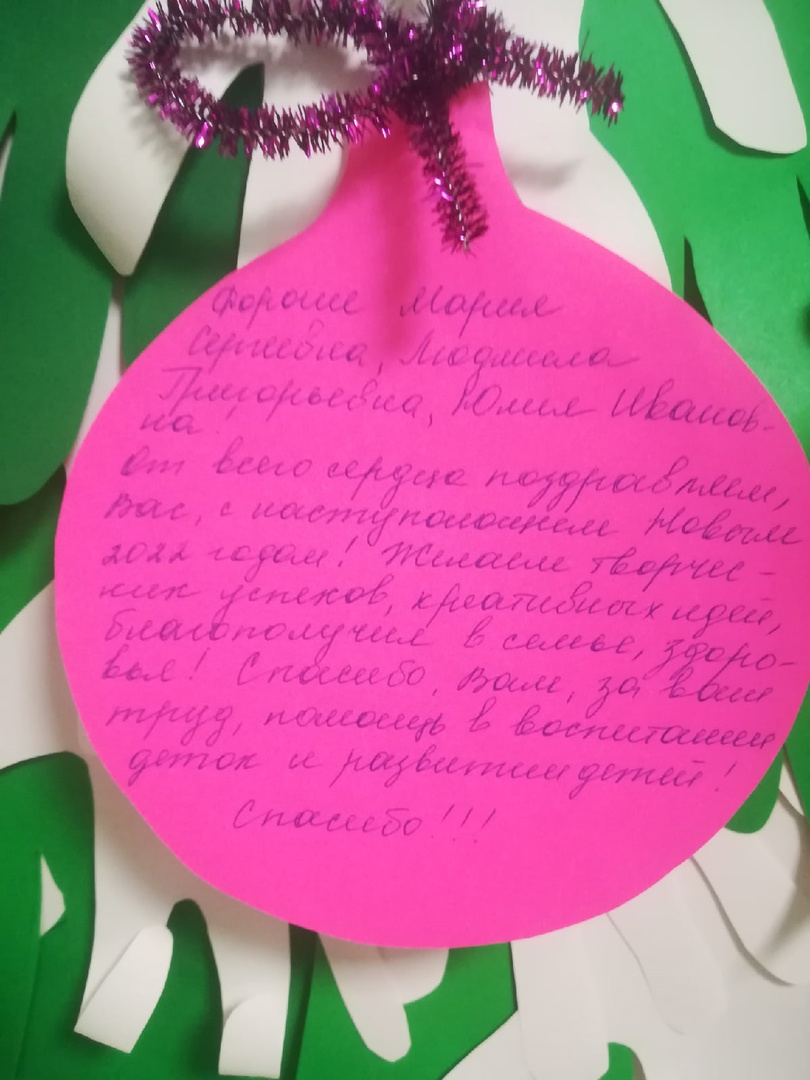 Дорогие Мария
Сергеевна, Людмила
Григорьевна, Юлия Иванов-
на!
От всего сердца поздравляем,
Вас, с наступающем Новым
2022 годом! Желаем творчес-
ких успехов, креативных идей,
благополучия в семье, здоро-
вья! Спасибо, Вам, за ваш
труд, помощь в воспитании
деток и развитии детей!
Спасибо!!!